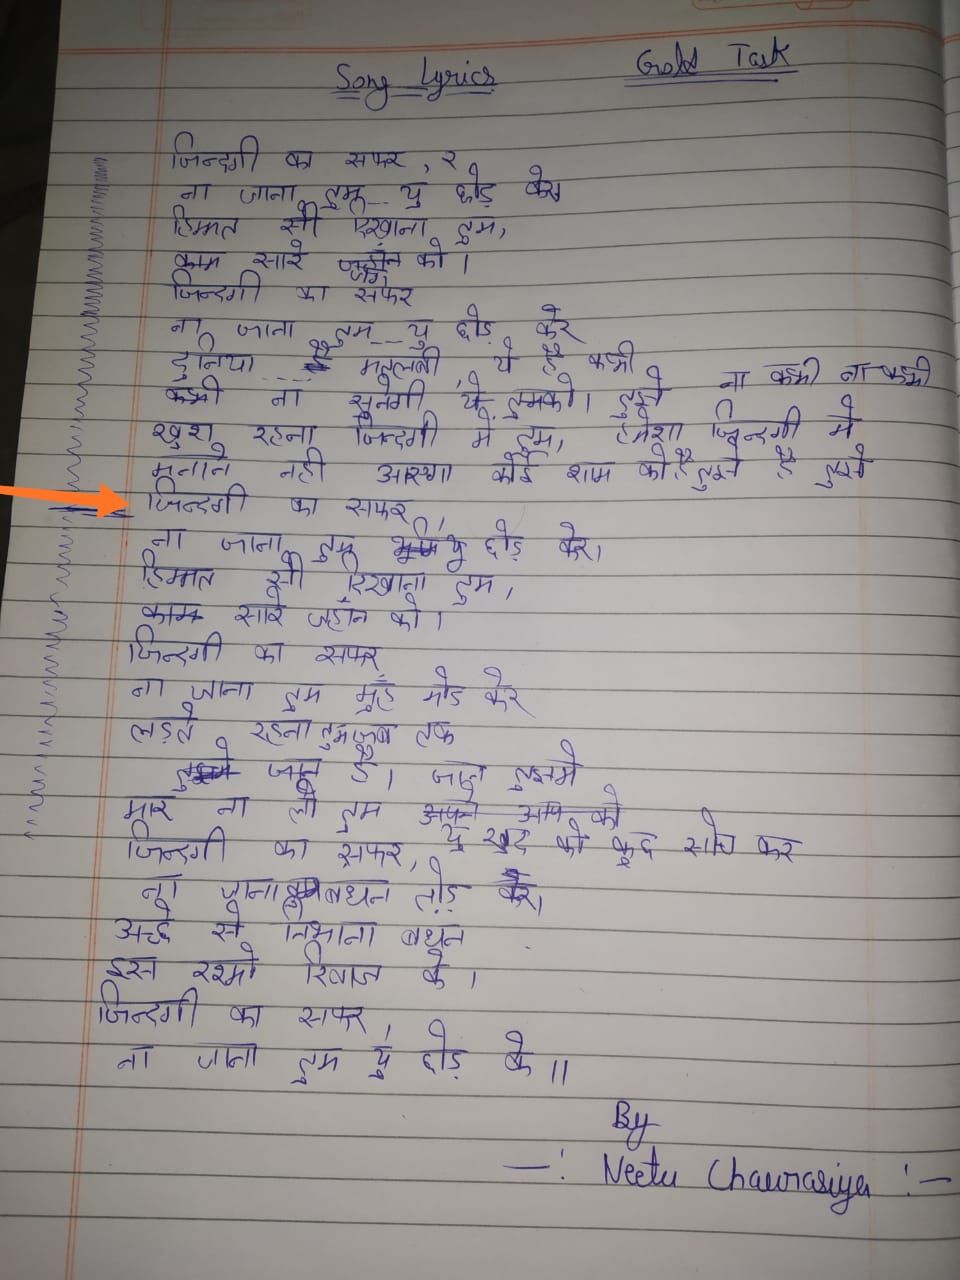 Song Lyrics Gold Task
जिन्दगी का सफर, २
ना जाना तुम... यु छोड़ केर
हिम्मत सी दिखाना तुम,
काम सारे जहाँन को।
जिन्दगी का सफर
ना जाना तुम... यु छोड़ केर
दुनिया .... मतलबी, ये है कभी ना कभी ना कभी
कभी ना सुनेगी ये तुमको। तुझे
खुश रहना जिन्दगी में तुम, हमेशा जिन्दगी में
मनाने नही आएगा कोई शाम को है तुझे है तुझे
जिन्दगी का सफर,
ना जाना तुम यु छोड़ केर,
हिम्मत सी दिखाना तुम,
काम सारे जहाँन को।
जिन्दगी का सफर
ना जाना तुम मुँह मोड केर
लड़ते रहना तुम जब तक
जान है। जादु तुझमे
मार ना लो तुम
यु खुद को कुद सोच कर
जिन्दगी का सफर,
ना जाना बधन तोड़ केर,
अच्छे से निभाना बधन
इस रश्मो रिवाज के।
जिन्दगी का सफर,
ना जाना तुम युं छोड़ के॥
By
—: Neetu Chaurasiya :—